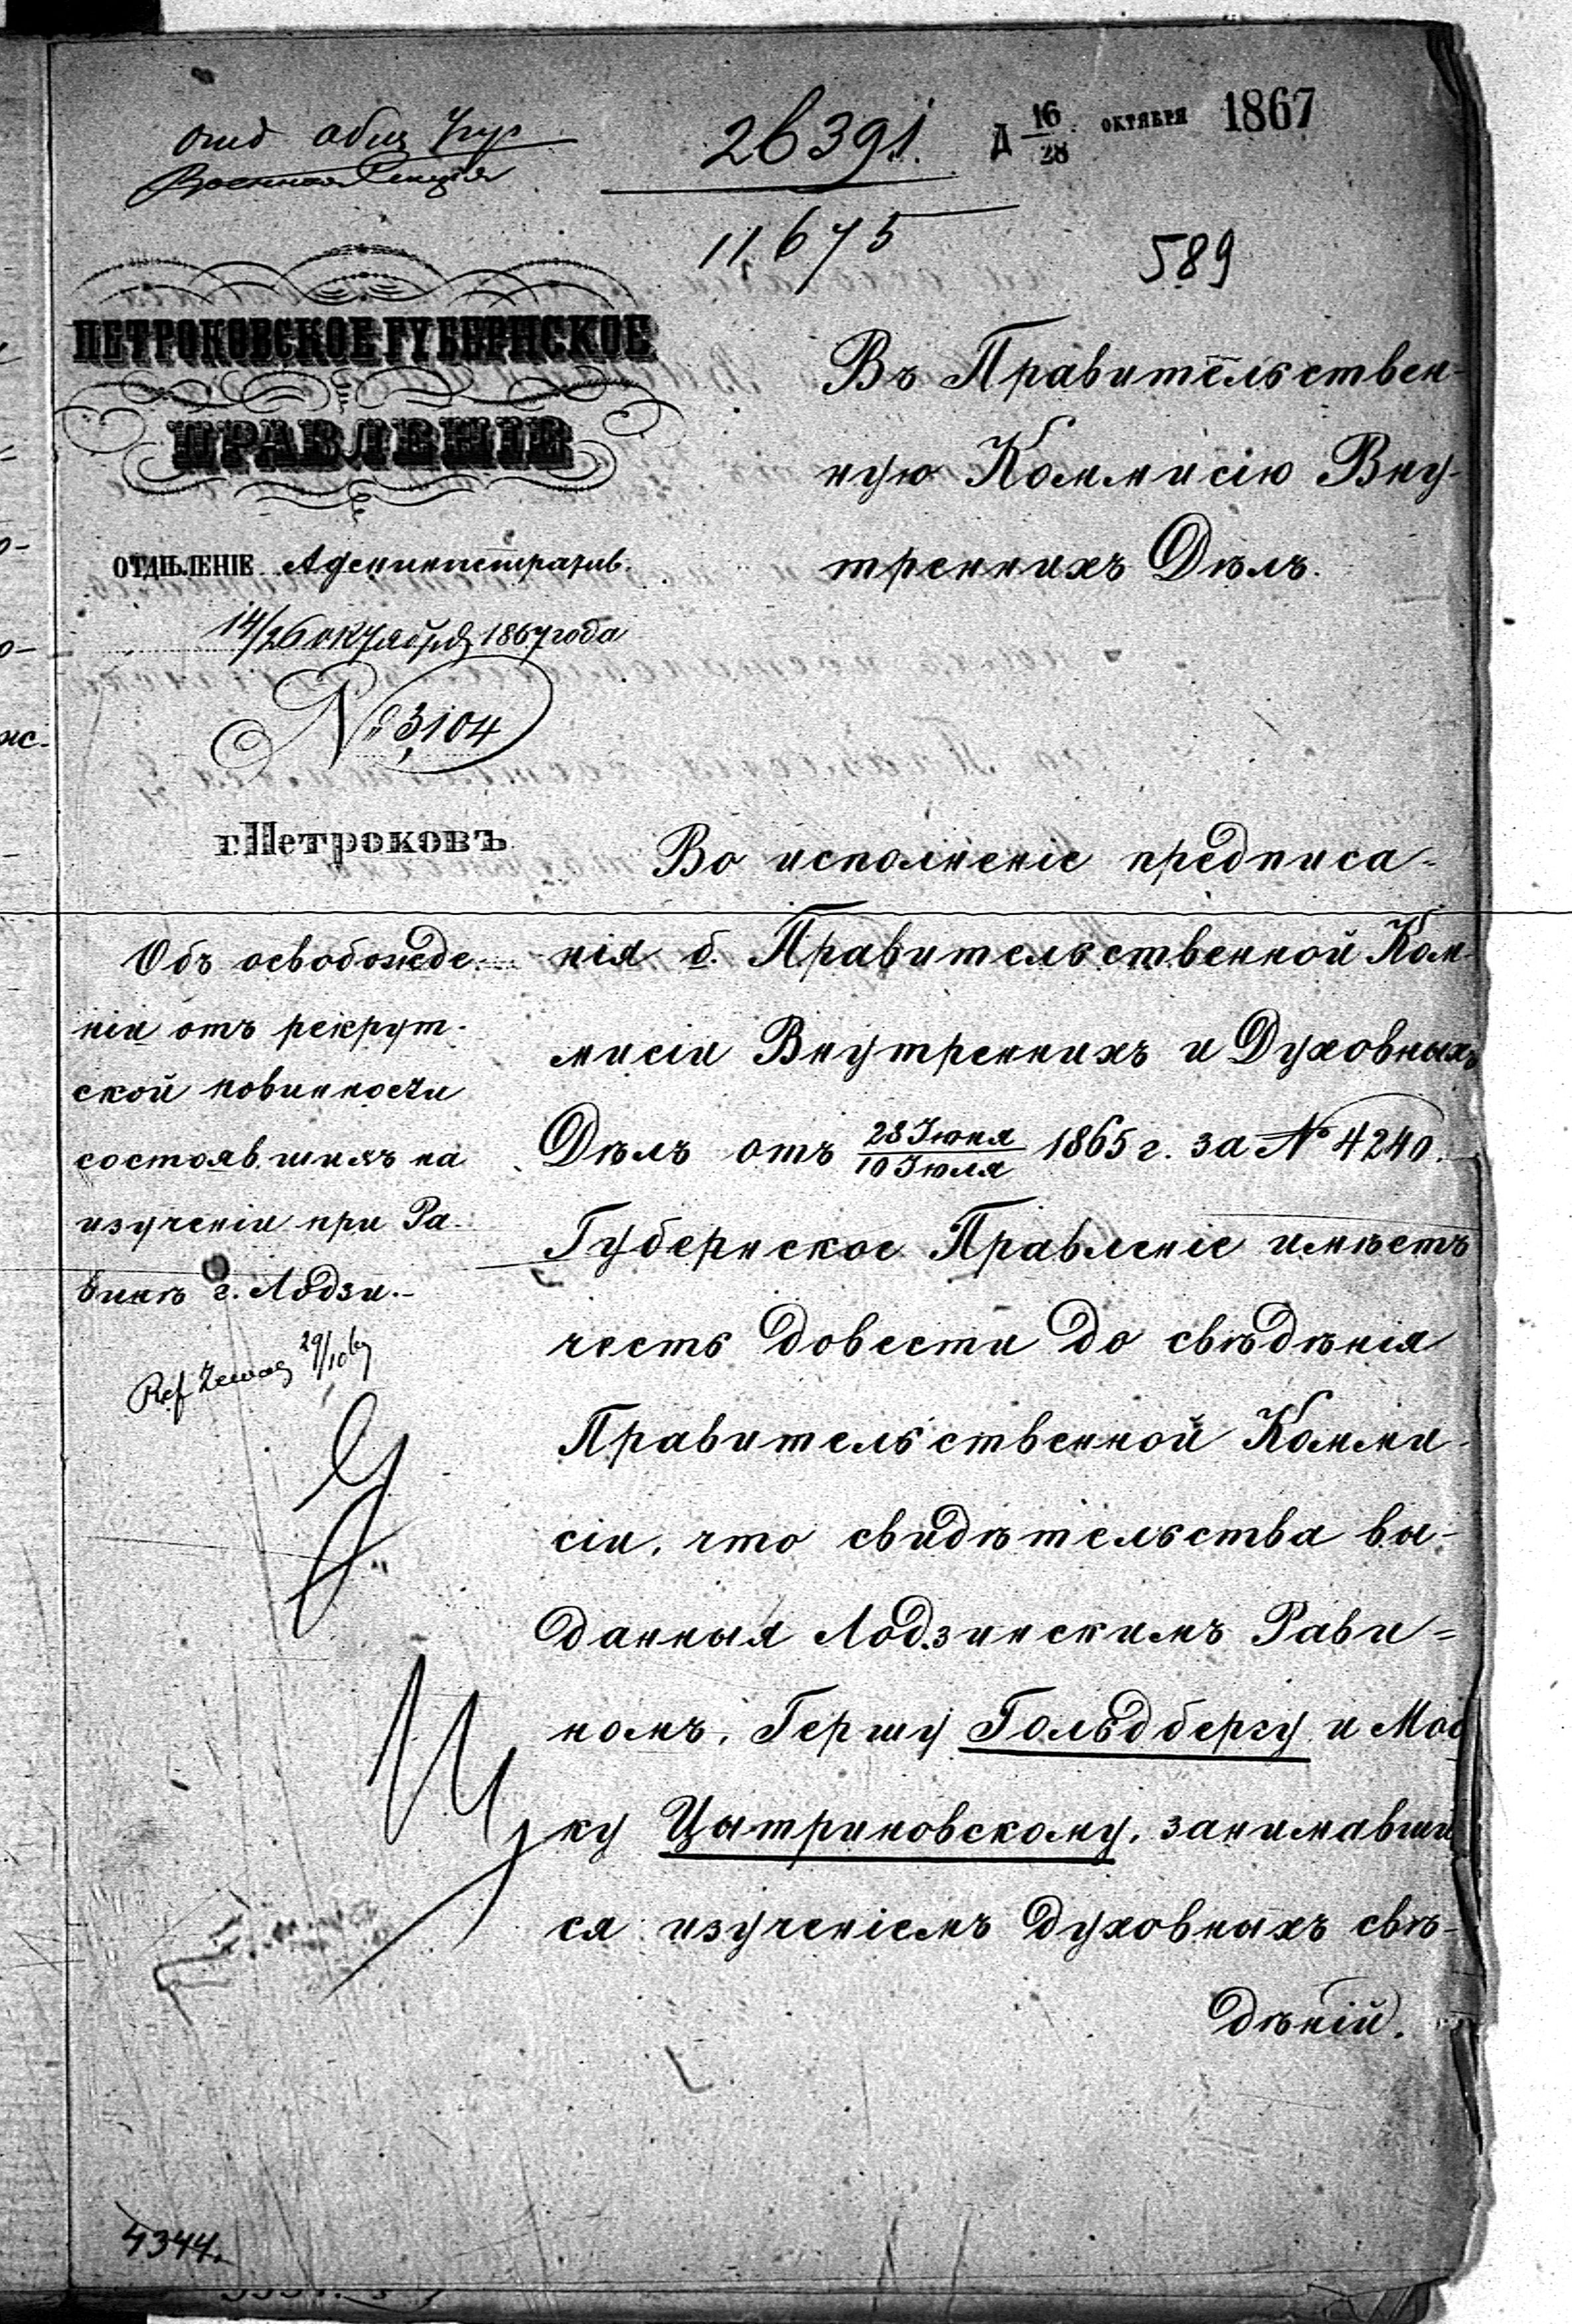 отд общ
Военная Секція
26391.
Д 16/28 ОКТЯБРЯ 1867
11675
589
ПЕТРОКОВСКОЕ ГУБЕРНСКОЕ
ПРАВЛЕНІЕ
ОТДѢЛЕНІЕ Административ.
14/26 октября 1867 года
№ 3104
г Петроковъ
Объ освобожде-
ніи отъ рекрут-
ской повинности
состоявшихъ на
изученіи при Ра-
бинѣ г. Лодзи.-
Ref 29/10 67
Въ Правительствен-
ную Коммисію Вну-
треннихъ Дѣлъ.
Во исполненіе предписа-
нія б. Правительственной Ком-
мисіи Внутреннихъ и Духовныхъ
Дѣлъ отъ 28 Іюня/10 Іюля 1865 г. за № 4240.
Губернское Правленіе имѣетъ
честь довести до свѣдѣнія
Правительственной Комми-
сіи, что свидѣтельства вы-
данныя Лодзинскимъ Рави-
номъ, Гершу Гольдбергу и Мос
ку Цытриновскому, занимавши
ся изученіемъ духовныхъ свѣ-
дѣній.
4344.